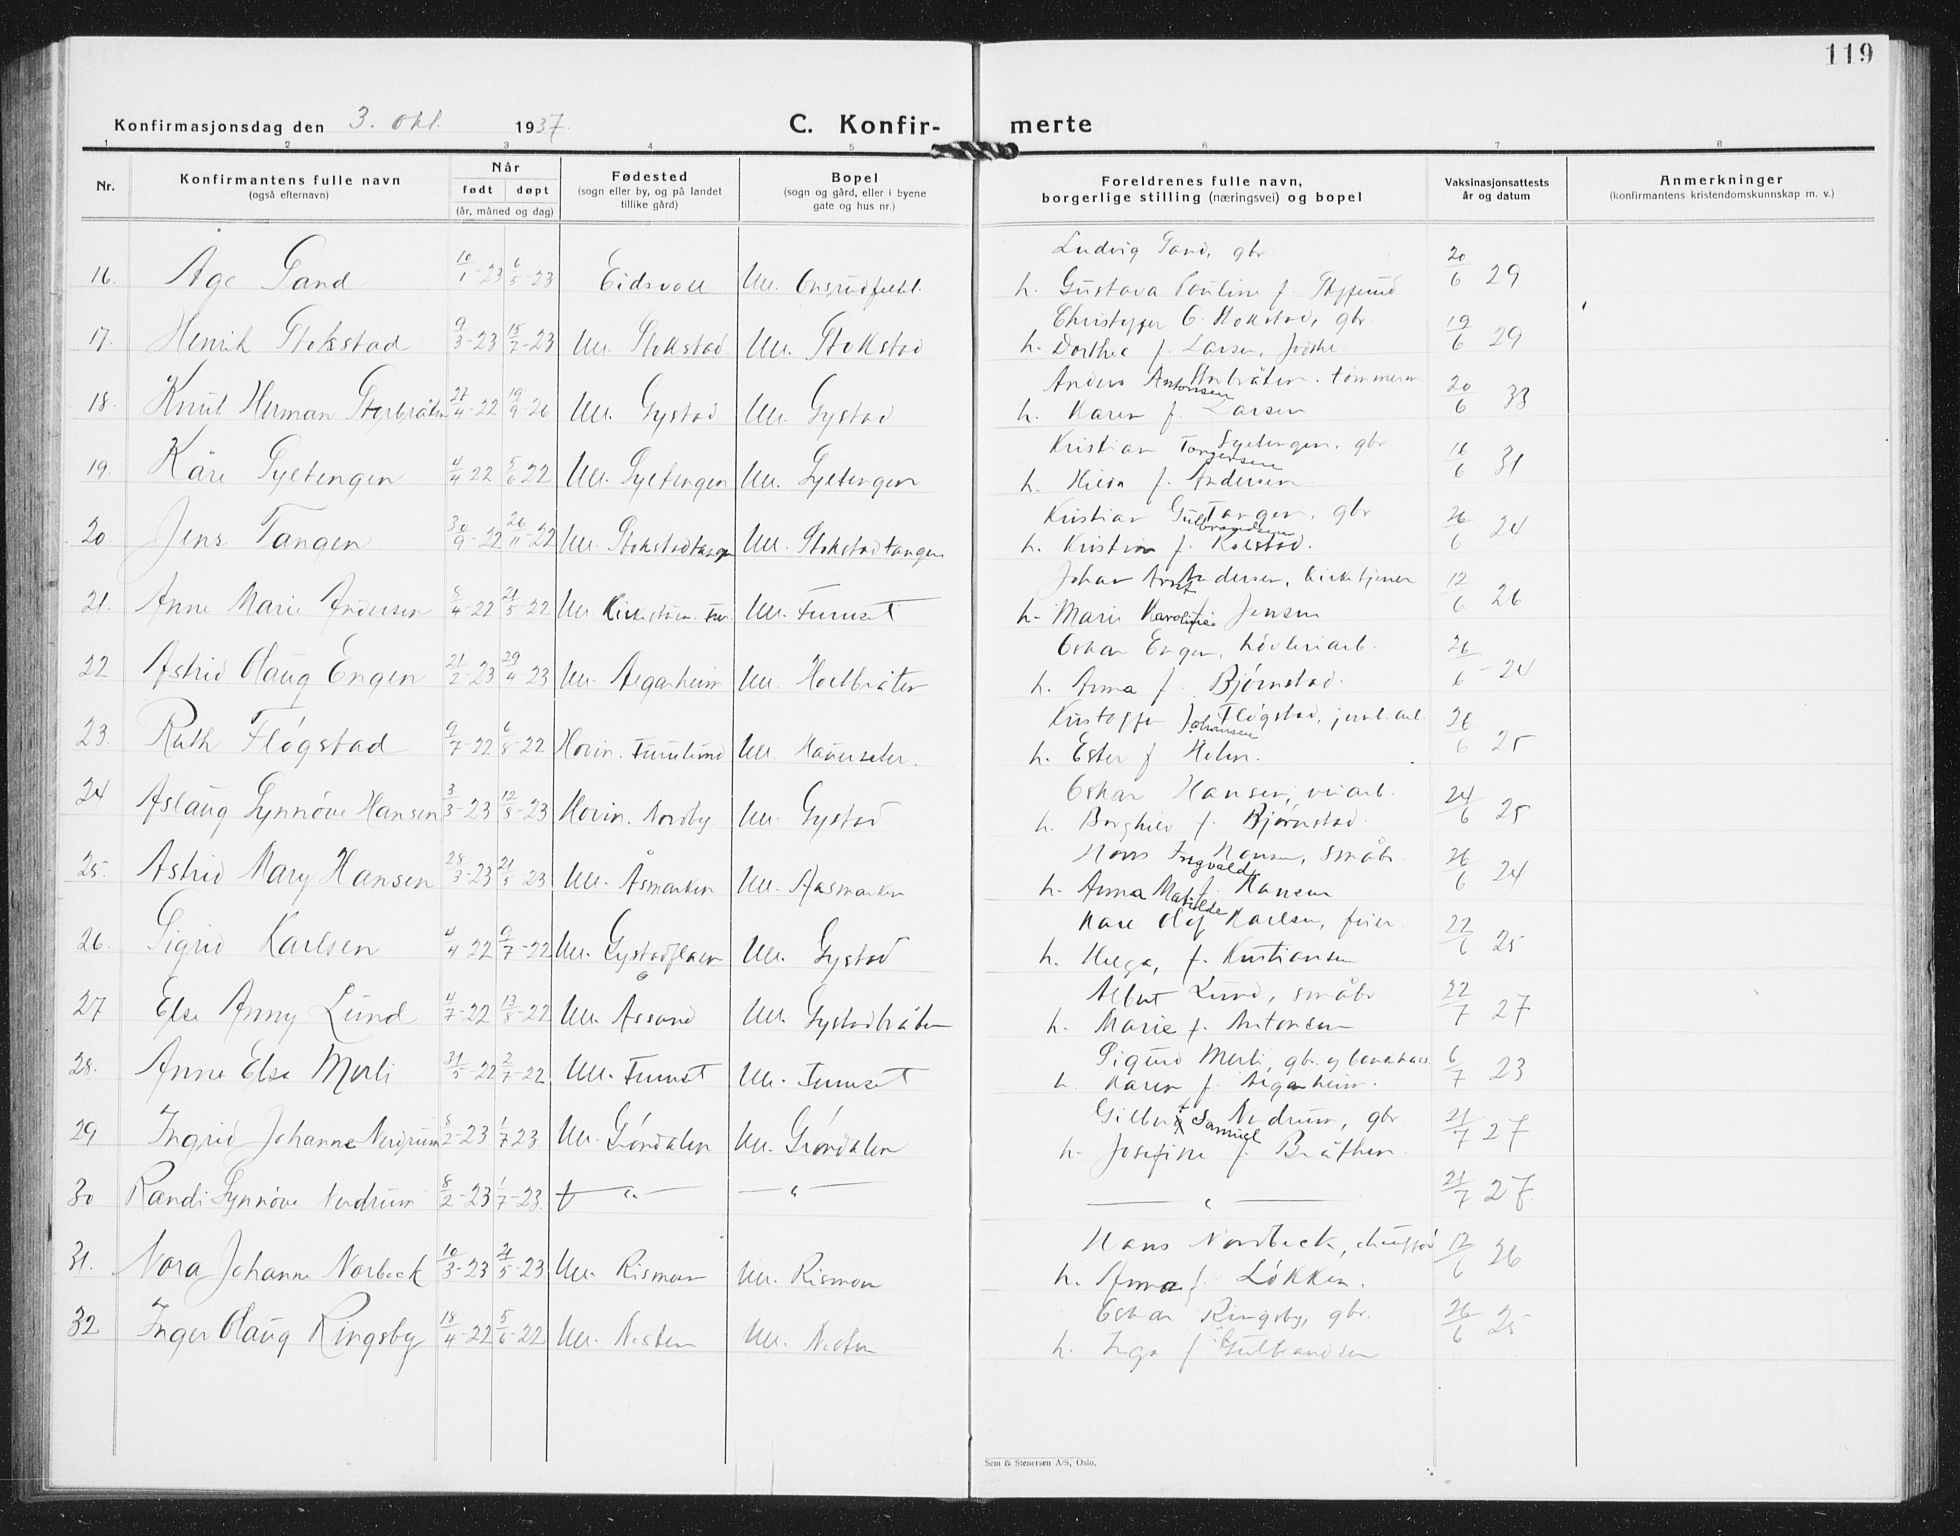 119
Konfirmasjonsdag den 3. okt. 1937. C. Konfir- merte
1 2 3 4 5 6 7 8
Nr. Konfirmantens fulle navn (også efternavn) Når født døpt (år, måned og dag) Fødested (sogn eller by, og på landet tillike gård) Bopel (sogn og gård, eller i byene gate og hus nr.) Foreldrenes fulle navn, borgerlige stilling (næringsvei) og bopel Vaksinasjonsattests år og datum Anmerkninger (konfirmantens kristendomskunnskap m. v.)
Ludvig Sand, gbr.
16. Åge Sand 10/1-23 6/5-23 Eidsvoll Ull. h. Gustava Pauline f. 20/6 29
Christoffer O. Stokstad, gbr.
17. Henrik Stokstad 9/3-23 15/7-23 Ull. Stokstad Ull. Stokstad h. Dorthea f. Larsen, 19/6 29
Anders Antonsen Storbråten. tømmerm.
18. Knut Herman Storbråten 27/4-22 19/9-26 Ull. Gystad Ull. Gystad h. Karen f. Larsen 20/6 33
Kristian Torgersen Syltengen, gbr
19. Kåre Syltengen 4/4 22 5/6 22 Ull. Syltengen Ull. Syltengen h. Hilda f. Andersen. 16/6 31
Kristian Gulbrandsen Tangen, gbr.
20. Jens Tangen 30/9-22 26/11-22 Ull. Stokstadtangen Ull. Stokstadtangen h. Kristine f. Kolstad. 26/6 24
Johan Arnt Andersen, kirketjener
21. Anne Marie Andersen 8/4-22 21/5-22 Ull. Ull. Furuset h. Marie Karoline f. Jensen 12/6 26
Oskar Engen, høvleriarb.
22 Astrid Olaug Engen 21/2-23 29/4-23 Ull. Algarheim Ull. Holtbråten h. Anna f. Bjørnstad. 26/6-24
Kristoffer Johansen Fløgstad, jernb.arb.
23. Ruth Fløgstad 9/7-22 6/8-22 Hovin. Furulund Ull. Hauerseter. h. Ester f Holm. 26/6 25
Oskar Hansen, veiarb.
24 Aslaug Synnøve Hansen 3/3-23 12/8-23 Hovin. Nordby Ull. Gystad h. Borghild f. Bjørnstad. 24/6 25
Hans Ingvald Hansen, småbr.
25. Astrid Mary Hansen 28/3-23 21/5-23 Ull. Åsmarken Ull. Aasmarken h. Anna Matilde f. Hansen 26/6 24
Karl Olaf Karlsen, feier.
26. Sigrid Karlsen 4/4-22 9/7-22 Ull. Gystad Ull. Gystad h. Helga, f. Kristiansen 22/6 25
Albert Lund, småbr
27 Else Anny Lund 4/7-22 13/8-22 Ull. Åssand Ull. Gystadbråten h. Marie f. Antonsen 22/7 27
Sigurd Merli, gbr. og
28. Anne Else Merli 31/5-22 2/7-22 Ull. Furuset Ull. Furuset h. Karen f. Algarheim. 6/7 23
Gilbert Samuel Nerdrum, gbr.
29 Ingrid Johanne Nerdrum 8/2-23 1/7 23 Ull. Grøndalen Ull. Grøndalen h. Josefine f. Bråthen. 21/7 27
30 Randi Synnøve Nerdrum 8/2-23 1/7-23. — " — — " — — " — 21/7 27.
Hans Nordbeck, chauffør
31. Nora Johanne Norbeck 10/3-23 21/5-23 Ull. Rismoen Ull. Rismoen h. Anna f. Løkken. 12/6 26
Oskar Ringsby, gbr.
32 Inger Olaug Ringsby 18/4-22 5/6-22 Ull. Nesten Ull. Nesten h. Inga f Gulbrandsen 26/6 25
Sem & Stenersen A/S, Oslo.